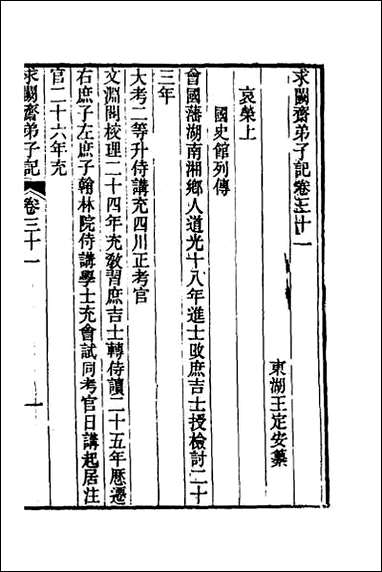 求闕齋弟子記卷三十一
東湖王定安纂
哀榮上
國史館列傳
曾國藩湖南湘鄉人道光十八年進士改庶吉士授檢討二十
三年
大考二等升侍講充四川正考官
文淵閣校理二十四年充敎習庶吉士轉侍讀二十五年歷遷
右庶子左庶子翰林院侍講學士充會試同考官日講起居注
官二十六年充
求闕齋弟子記
卷三十一
一